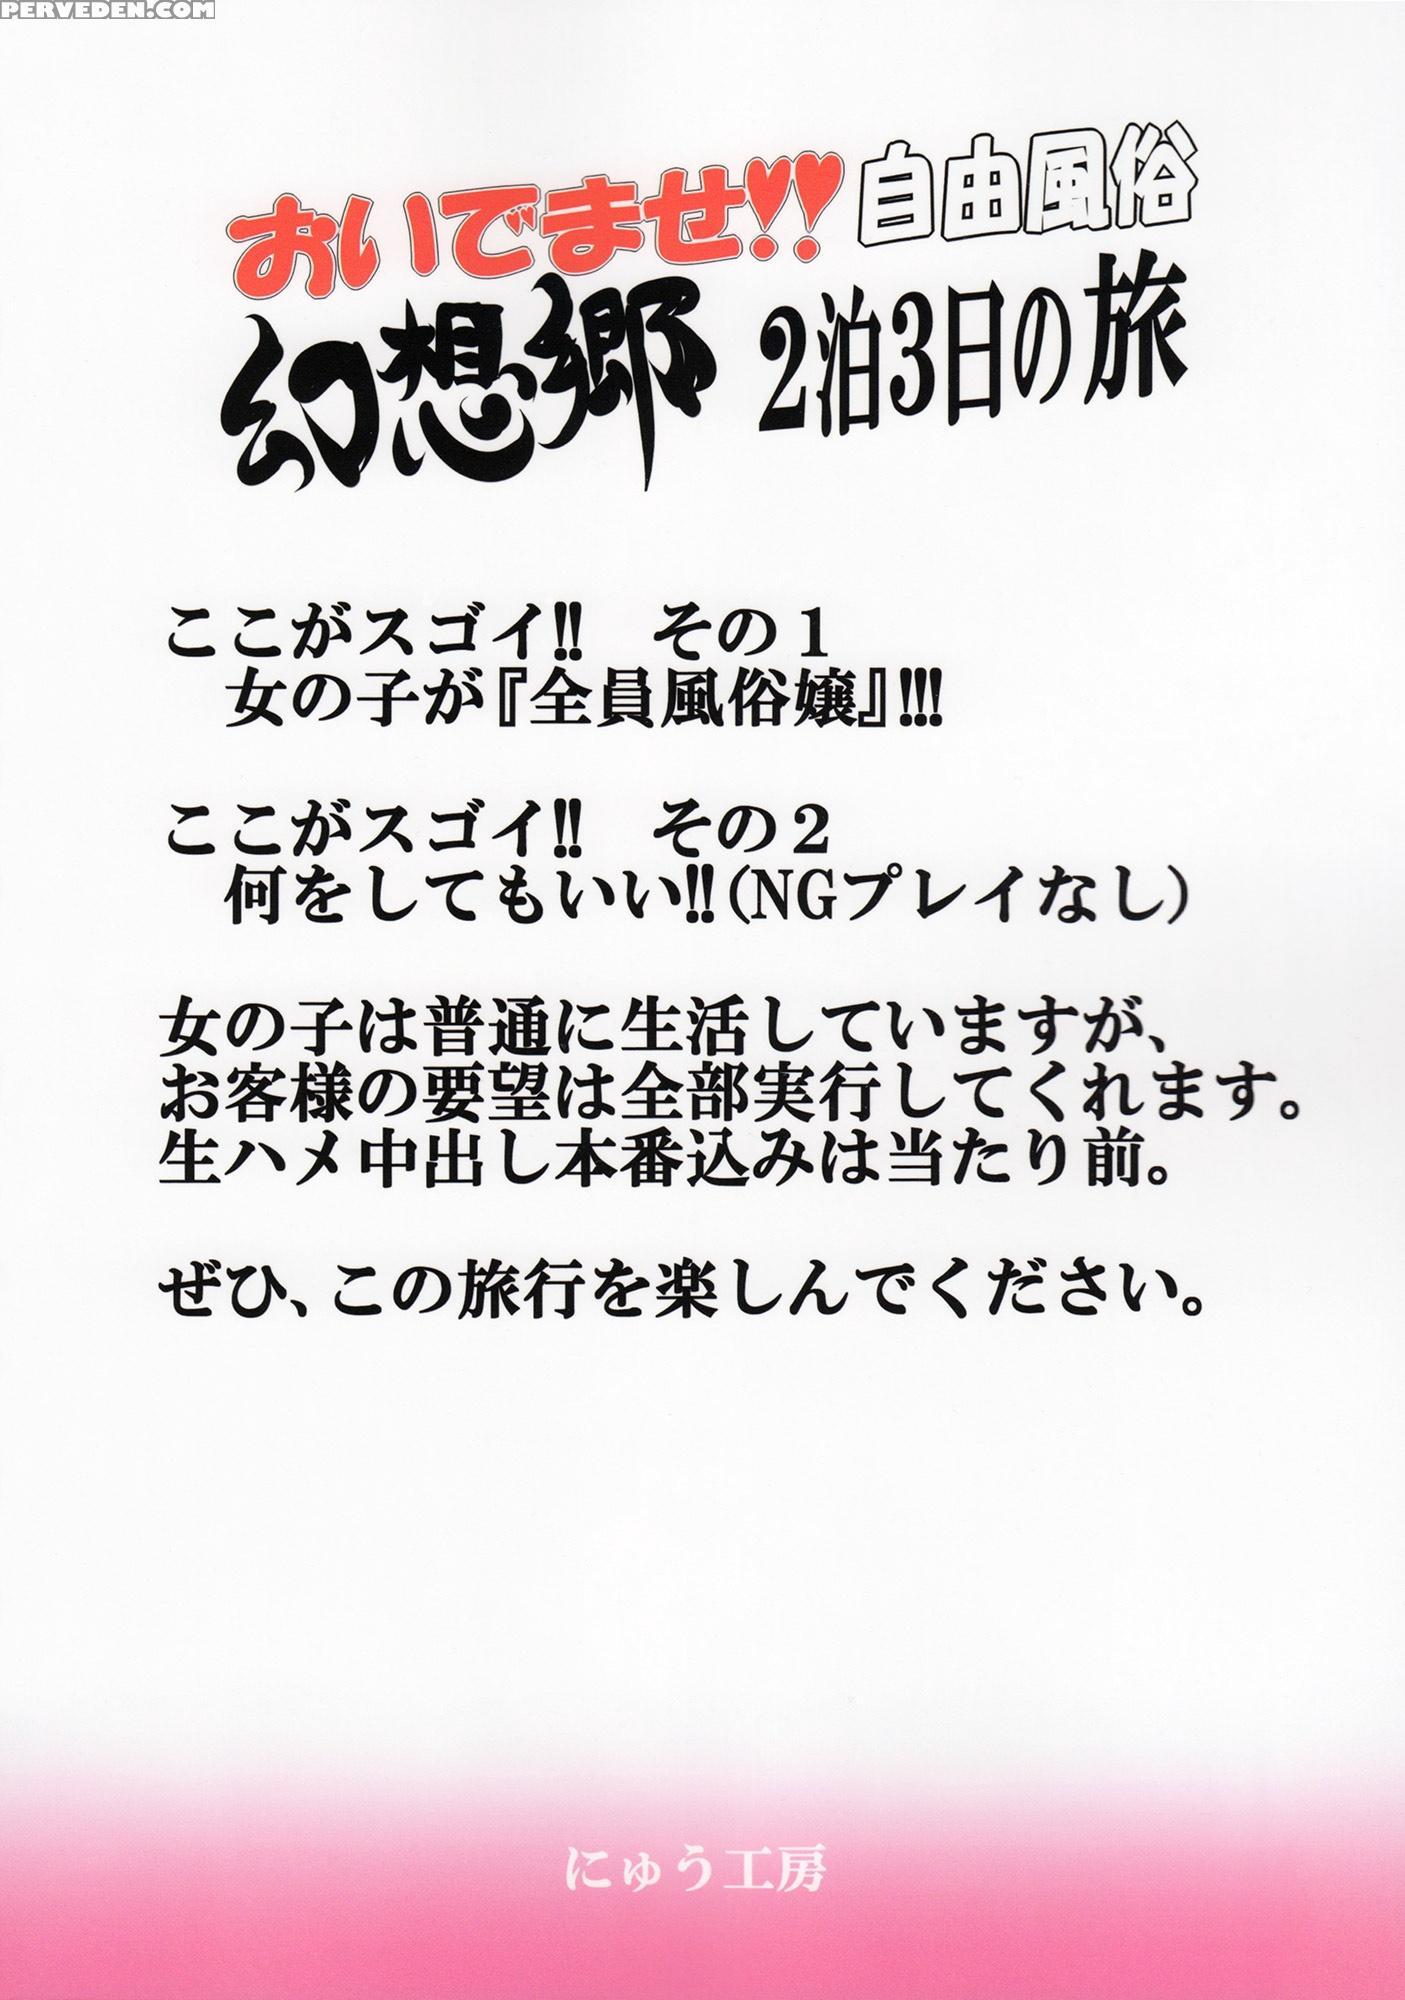 PERVEDEN.COM
おいでませ!! 自由風俗
幻想郷 2泊3日の旅
ここがスゴイ!! その1
女の子が『全員風俗嬢』!!!
ここがスゴイ!! その2
何をしてもいい!!(NGプレイなし)
女の子は普通に生活していますが、
お客様の要望は全部実行してくれます。
生ハメ中出し本番込みは当たり前。
ぜひ、この旅行を楽しんでください。
にゅう工房